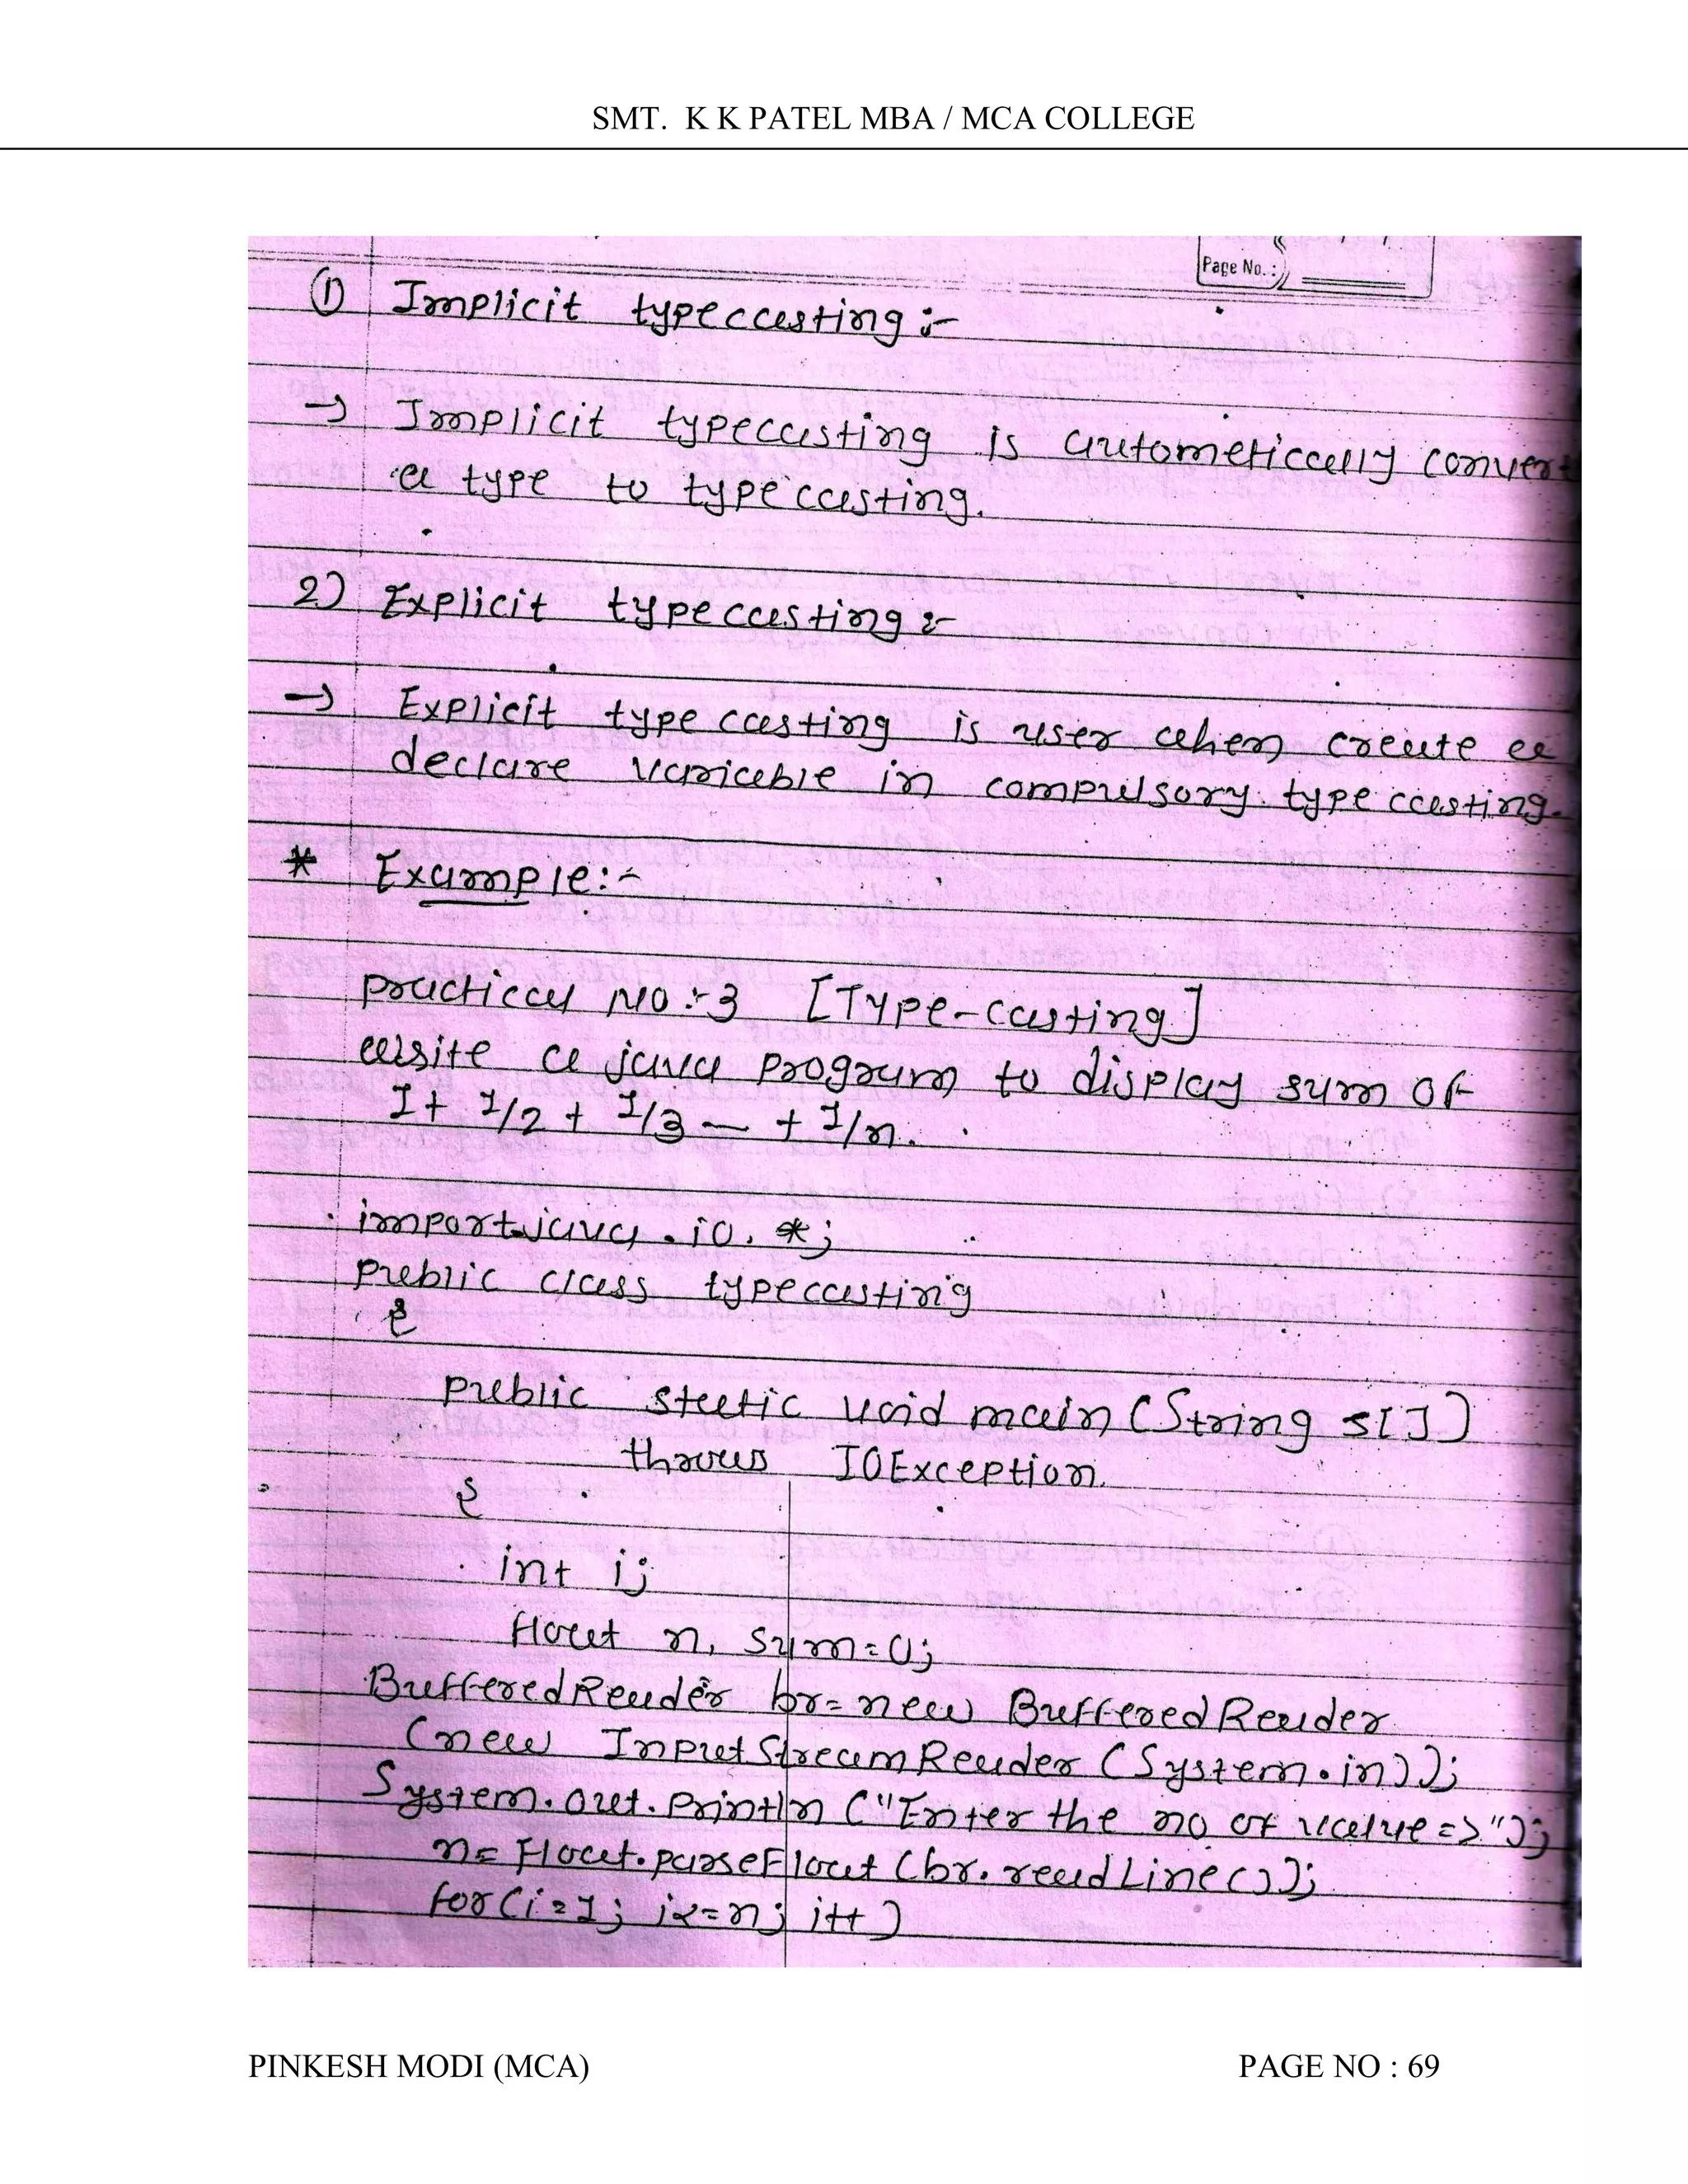 SMT. K K PATEL MBA / MCA COLLEGE
Page No. :
① Implicit typecasting :-
→ Implicit typecasting is autometically convert
a type to typecasting.
2) Explicit typecasting :-
→ Explicit type casting is user when create a
declare variable in compulsory type casting.
* Example :-
practical No :- 3 [Type-casting]
write a java program to display sum of
1+ 1/2 + 1/3 — + 1/n.
import java.io.*;
public class typecasting
{
public static void main (String s[])
throws IOException
{
int i;
float n, sum=0;
BufferedReader br= new BufferedReader
(new InputStreamReader (System.in));
System.out.println ("Enter the no of value =>");
n= Float.parseFloat (br.readLine());
for(i=1; i<=n; i++)
PINKESH MODI (MCA)
PAGE NO : 69